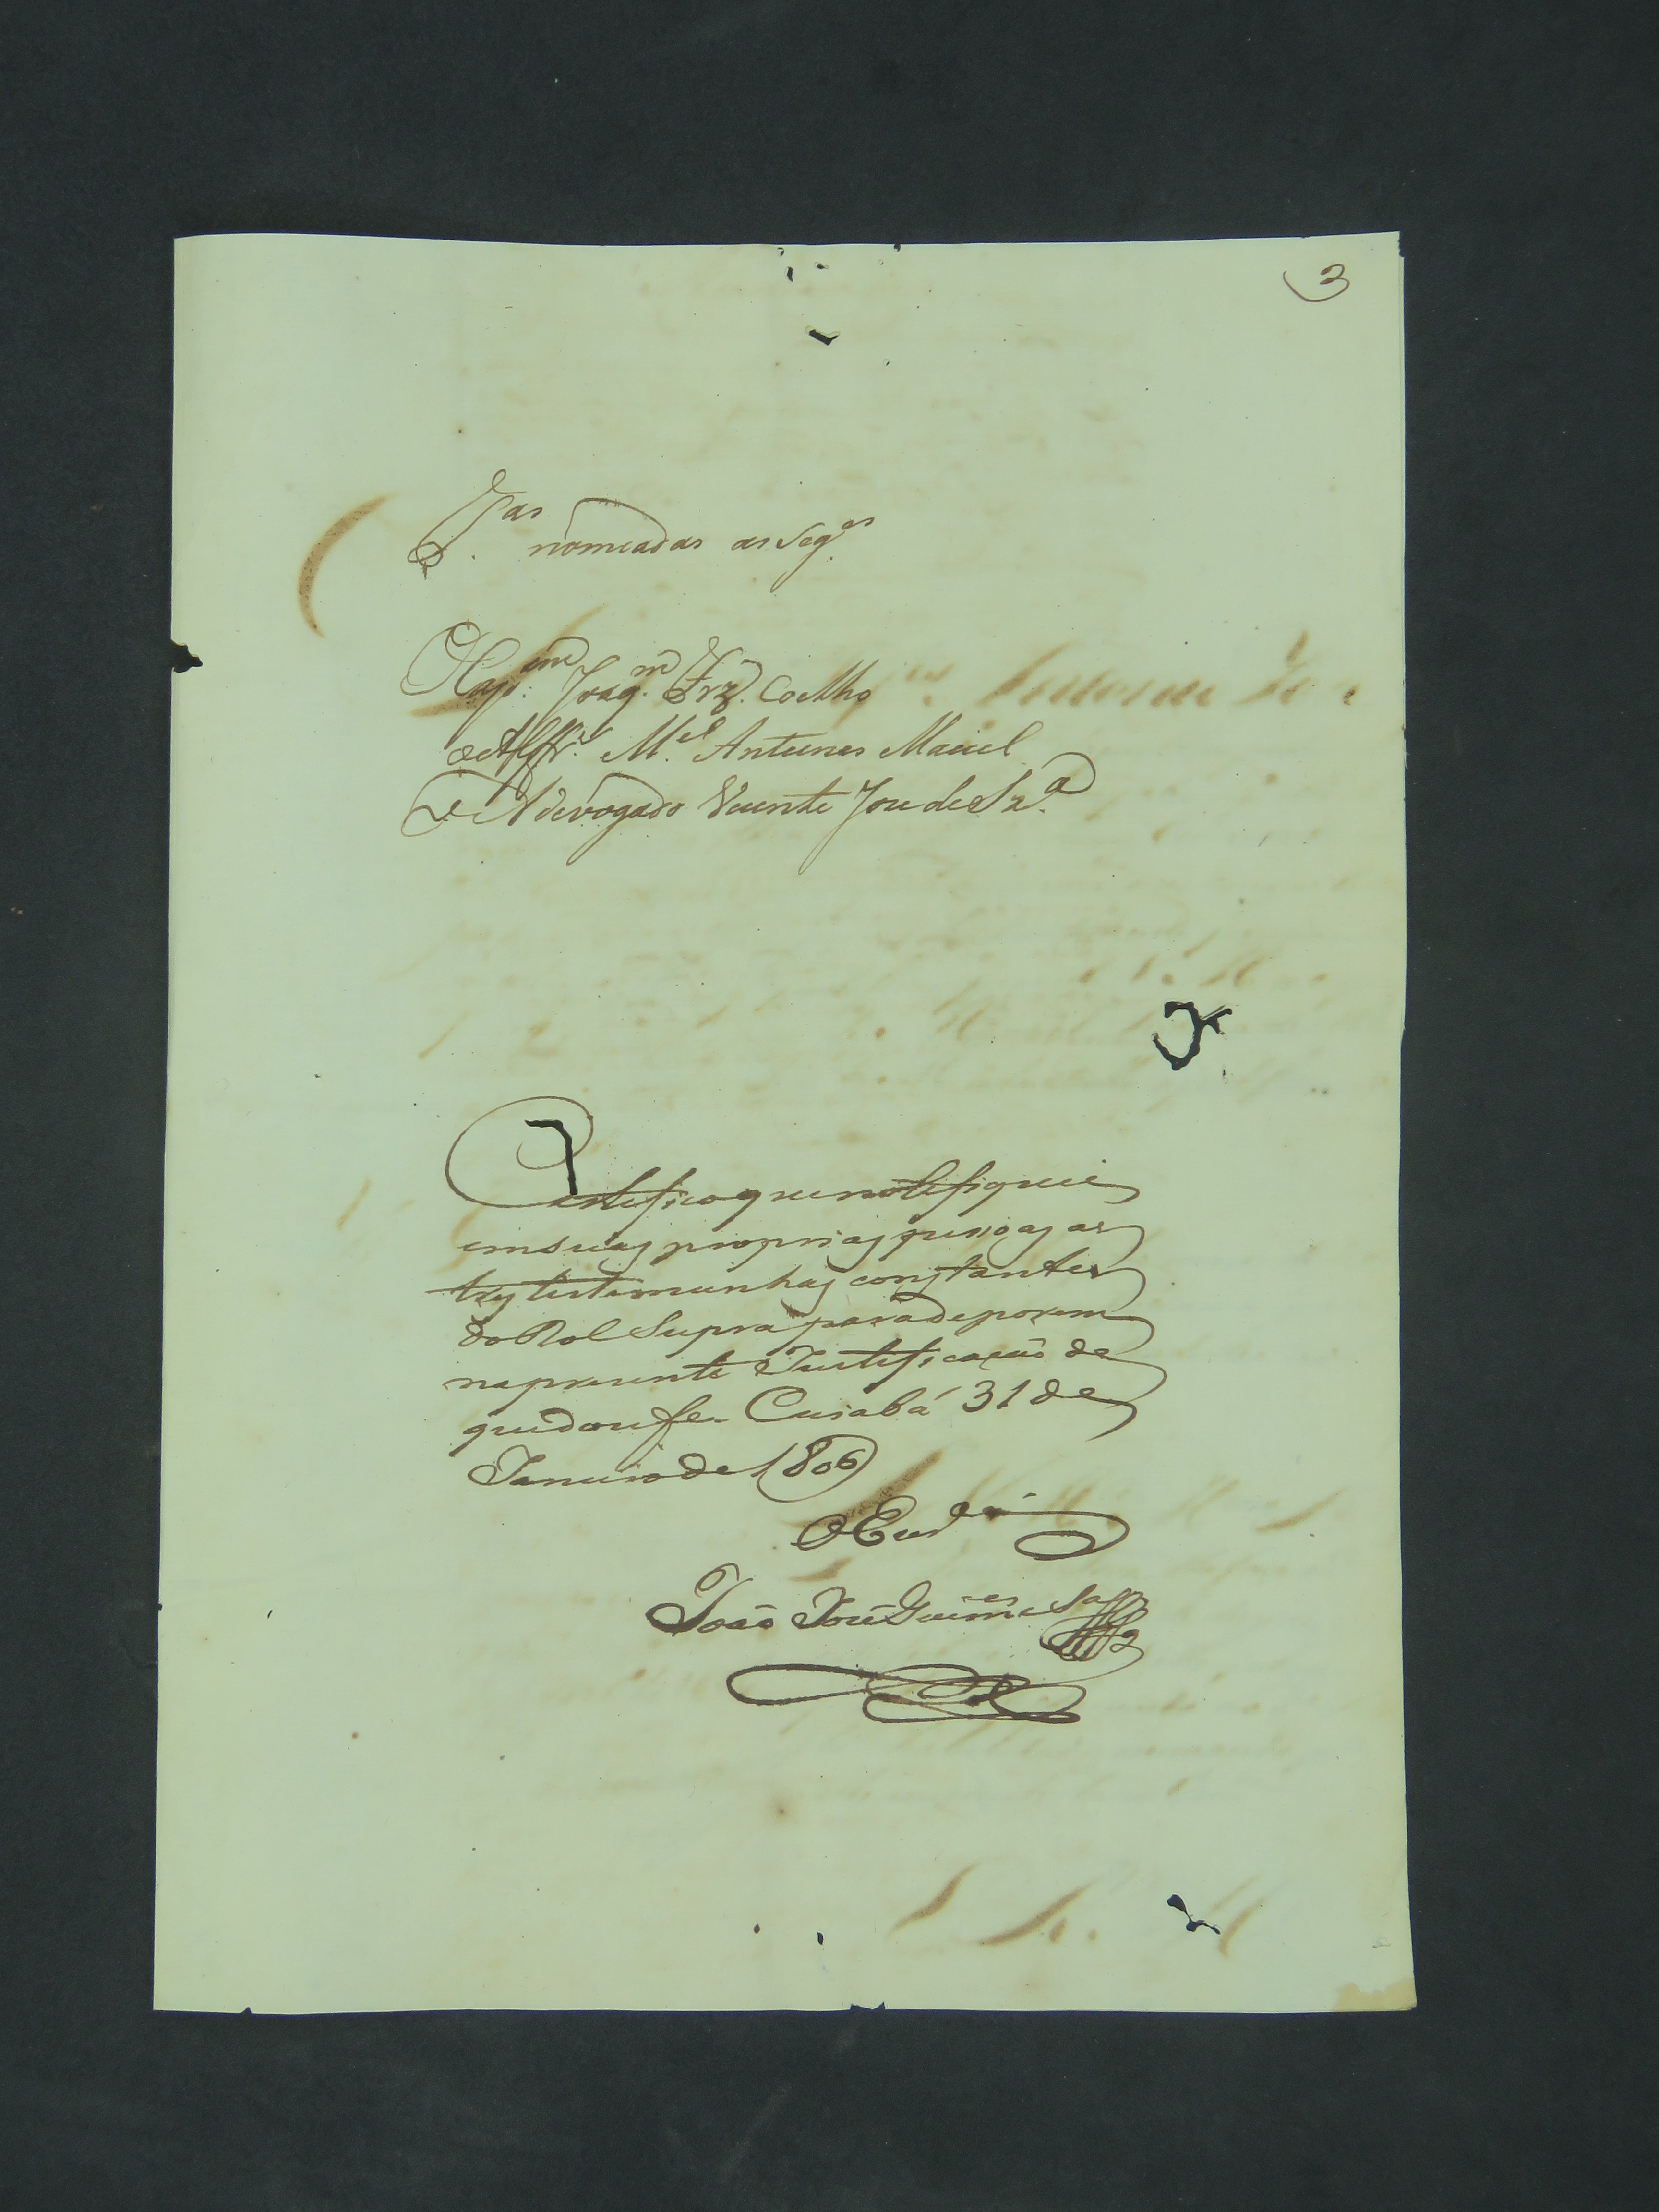 3
T.as nomeadas as Seg.es
O Cap.am Joaq.m Frz. Coelho
o Alffr.s M.el Antunes Maciel
O Advogado Vicente Joze de Sz.a
Certefico que notefiquei
em suas proprias pessoas as
tres testemunhas constantes
do Rol Supra para deporem
na prezente Justificação de
que dou fe. Cuiabá 31 de
Janeiro de 1806
João José Guim.es